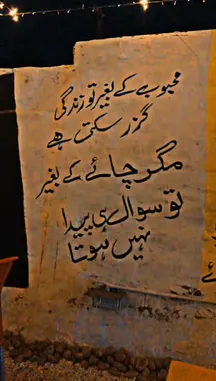 محبوب کے بغیر تو زندگی
گزر سکتی ہے
مگر چائے کے بغیر
تو سوال ہی پیدا
نہیں ہوتا